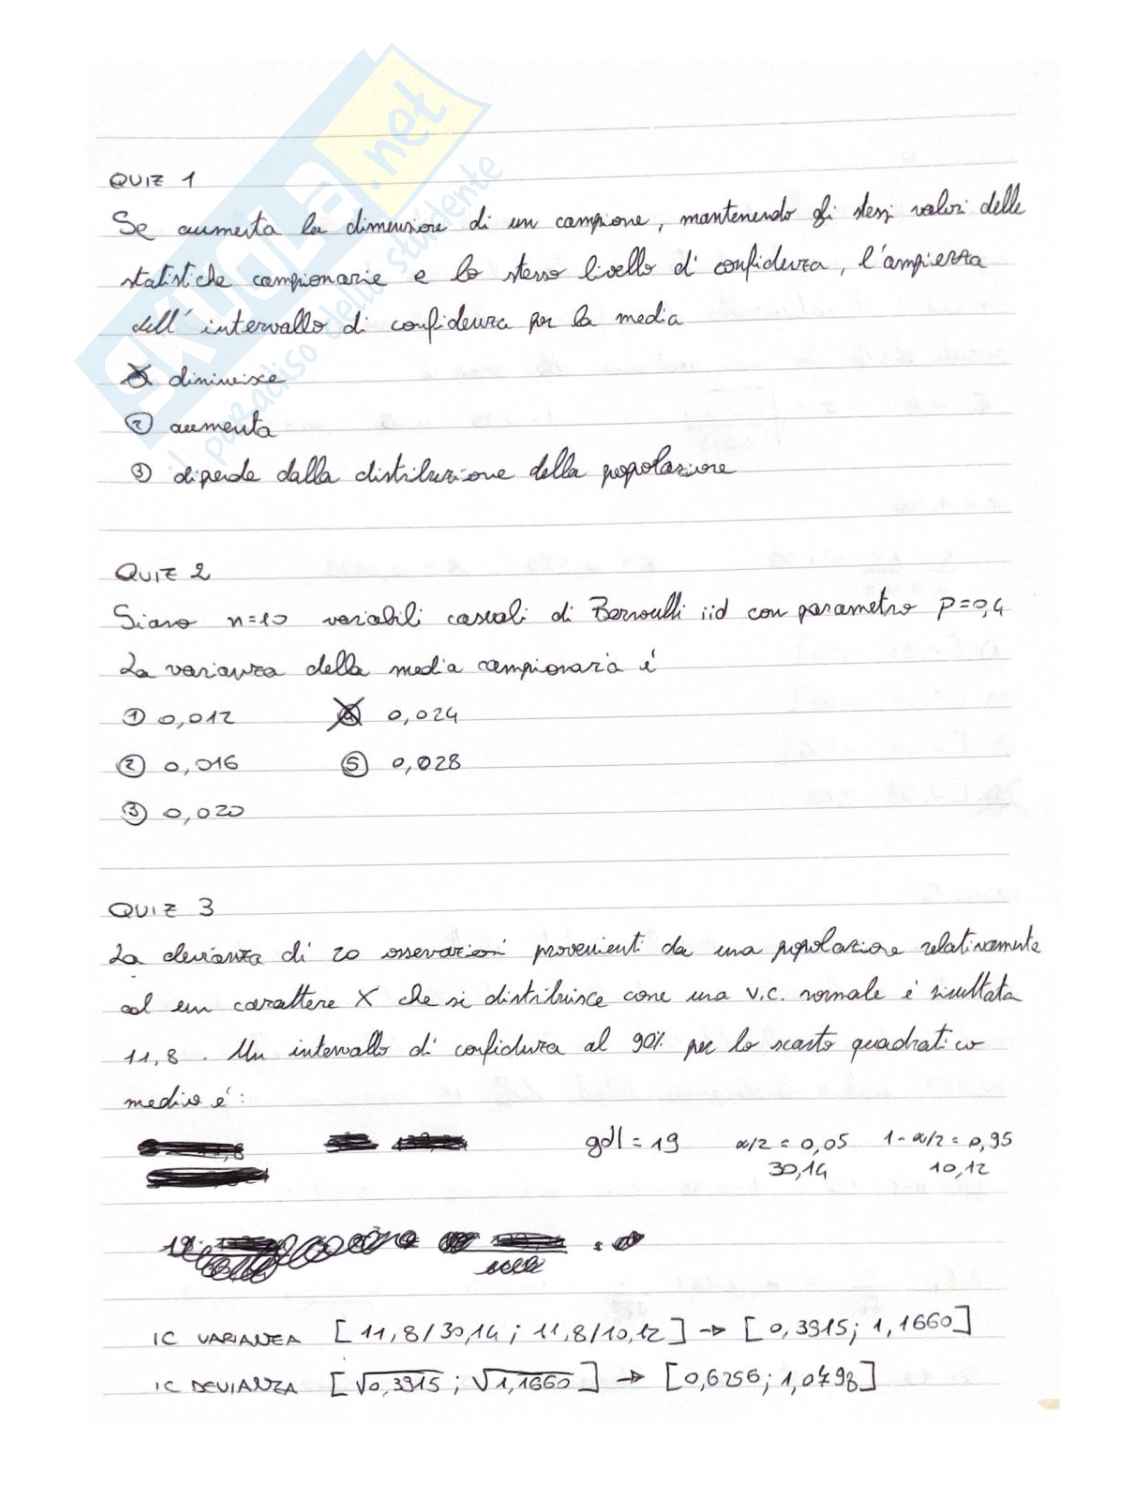 SKUOLA.net
il paradiso dello studente
QUIZ 1
Se aumenta la dimensione di un campione, mantenendo gli stessi valori delle
statistiche campionarie e lo stesso livello di confidenza, l'ampiezza
dell'intervallo di confidenza per la media
diminuisce
② aumenta
③ dipende dalla distribuzione della popolazione
QUIZ 2
Siano n=10 variabili casuali di Bernoulli iid con parametro P=0,4
La varianza della media campionaria è
① 0,012 ④ 0,024
② 0,016 ⑤ 0,028
③ 0,020
QUIZ 3
La devianza di 20 osservazioni provenienti da una popolazione relativamente
ad un carattere X che si distribuisce come una v.c. normale è risultata
11,8. Un intervallo di confidenza al 90% per lo scarto quadratico
medio è:
gdl = 19 α/2 = 0,05 1-α/2 = 0,95
30,14 10,12
IC VARIANZA [11,8/30,14 ; 11,8/10,12] → [0,3915; 1,1660]
IC DEVIANZA [√0,3915 ; √1,1660] → [0,6256; 1,0798]